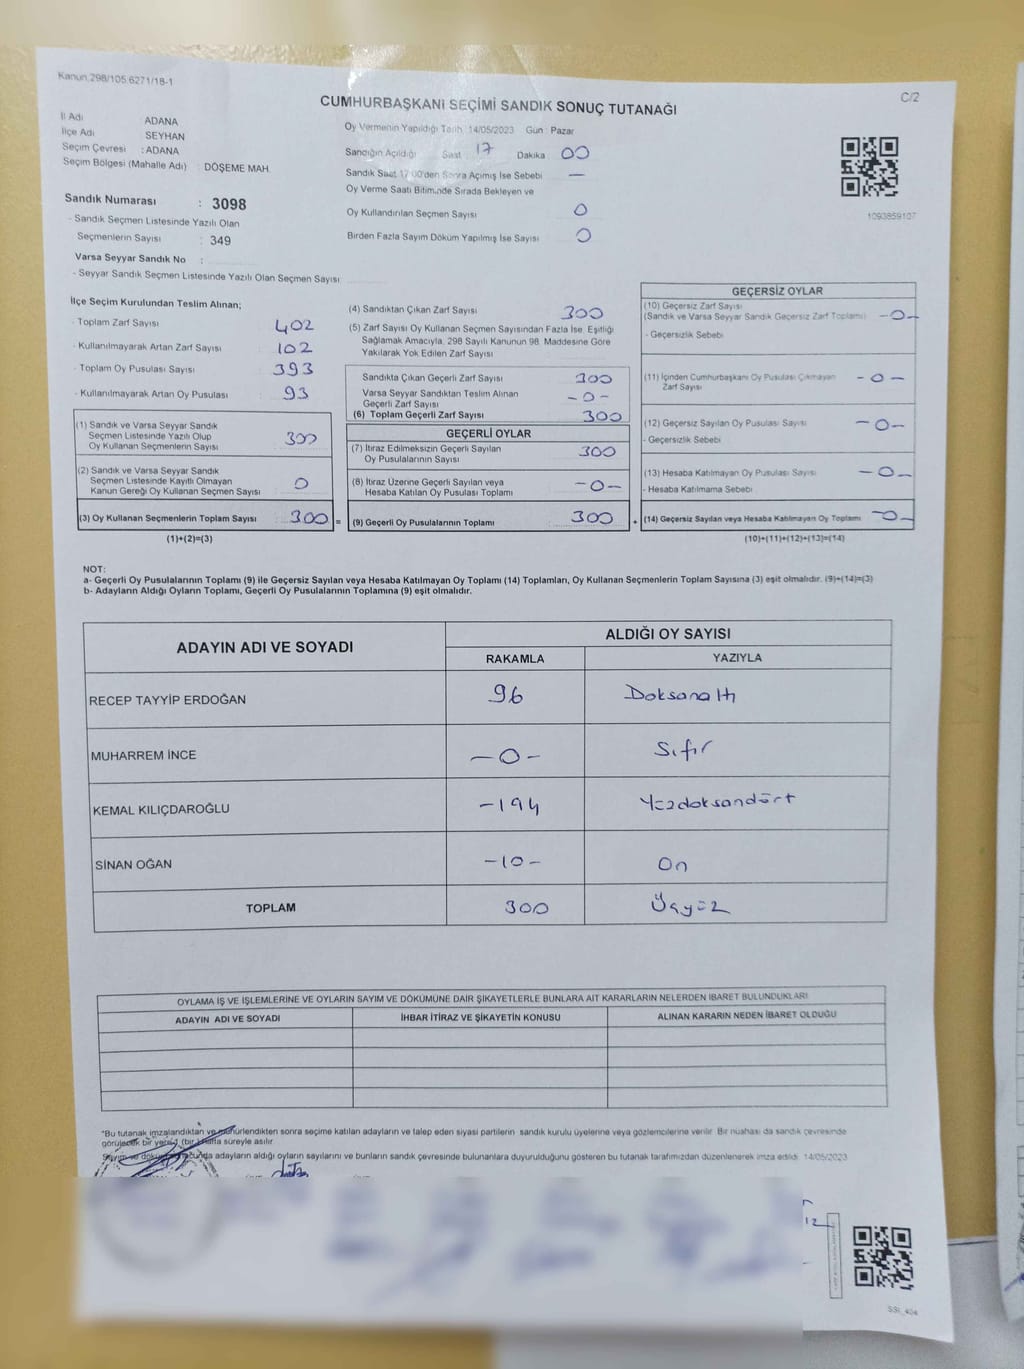 Kanun 298/105 6271/18-1
C/2
CUMHURBAŞKANI SEÇİMİ SANDIK SONUÇ TUTANAĞI
İl Adı ADANA
İlçe Adı SEYHAN
Seçim Çevresi : ADANA
Seçim Bölgesi (Mahalle Adı) : DÖŞEME MAH.
Sandık Numarası : 3098
- Sandık Seçmen Listesinde Yazılı Olan
Seçmenlerin Sayısı : 349
Varsa Seyyar Sandık No :
- Seyyar Sandık Seçmen Listesinde Yazılı Olan Seçmen Sayısı
Oy Vermenin Yapıldığı Tarih 14/05/2023 Gün Pazar
Sandığın Açıldığı Saat 17 Dakika 00
Sandık Saat 17:00'den Sonra Açımış İse Sebebi —
Oy Verme Saati Bitiminde Sırada Bekleyen ve
Oy Kullandırılan Seçmen Sayısı 0
Birden Fazla Sayım Döküm Yapılmış İse Sayısı 0
1093859107
İlçe Seçim Kurulundan Teslim Alınan;
- Toplam Zarf Sayısı 402
- Kullanılmayarak Artan Zarf Sayısı 102
- Toplam Oy Pusulası Sayısı 393
- Kullanılmayarak Artan Oy Pusulası 93
(1) Sandık ve Varsa Seyyar Sandık
Seçmen Listesinde Yazılı Olup
Oy Kullanan Seçmenlerin Sayısı 300
(2) Sandık ve Varsa Seyyar Sandık
Seçmen Listesinde Kayıtlı Olmayan
Kanun Gereği Oy Kullanan Seçmen Sayısı 0
(3) Oy Kullanan Seçmenlerin Toplam Sayısı 300 =
(1)+(2)=(3)
(4) Sandıktan Çıkan Zarf Sayısı 300
(5) Zarf Sayısı Oy Kullanan Seçmen Sayısından Fazla İse, Eşitliği
Sağlamak Amacıyla, 298 Sayılı Kanunun 98. Maddesine Göre
Yakılarak Yok Edilen Zarf Sayısı
Sandıkta Çıkan Geçerli Zarf Sayısı 300
Varsa Seyyar Sandıktan Teslim Alınan
Geçerli Zarf Sayısı -0-
(6) Toplam Geçerli Zarf Sayısı 300
GEÇERLİ OYLAR
(7) İtiraz Edilmeksizin Geçerli Sayılan
Oy Pusulalarının Sayısı 300
(8) İtiraz Üzerine Geçerli Sayılan veya
Hesaba Katılan Oy Pusulası Toplamı -0-
(9) Geçerli Oy Pusulalarının Toplamı 300 +
GEÇERSİZ OYLAR
(10) Geçersiz Zarf Sayısı
(Sandık ve Varsa Seyyar Sandık Geçersiz Zarf Toplamı) -0-
- Geçersizlik Sebebi
(11) İçinden Cumhurbaşkanı Oy Pusulası Çıkmayan
Zarf Sayısı -0-
(12) Geçersiz Sayılan Oy Pusulası Sayısı -0-
- Geçersizlik Sebebi
(13) Hesaba Katılmayan Oy Pusulası Sayısı -0-
- Hesaba Katılmama Sebebi
(14) Geçersiz Sayılan veya Hesaba Katılmayan Oy Toplamı -0-
(10)+(11)+(12)+(13)=(14)
NOT:
a- Geçerli Oy Pusulalarının Toplamı (9) ile Geçersiz Sayılan veya Hesaba Katılmayan Oy Toplamı (14) Toplamları, Oy Kullanan Seçmenlerin Toplam Sayısına (3) eşit olmalıdır. (9)+(14)=(3)
b- Adayların Aldığı Oyların Toplamı, Geçerli Oy Pusulalarının Toplamına (9) eşit olmalıdır.
ADAYIN ADI VE SOYADI ALDIĞI OY SAYISI
RAKAMLA YAZIYLA
RECEP TAYYİP ERDOĞAN 96 Doksanaltı
MUHARREM İNCE -0- Sıfır
KEMAL KILIÇDAROĞLU -194 Yüzdoksandört
SİNAN OĞAN -10- On
TOPLAM 300 Üçyüz
OYLAMA İŞ VE İŞLEMLERİNE VE OYLARIN SAYIM VE DÖKÜMÜNE DAİR ŞİKAYETLERLE BUNLARA AİT KARARLARIN NELERDEN İBARET BULUNDUKLARI
ADAYIN ADI VE SOYADI İHBAR İTİRAZ VE ŞİKAYETİN KONUSU ALINAN KARARIN NEDEN İBARET OLDUĞU
*Bu tutanak imzalandıktan ve mühürlendikten sonra seçime katılan adayların ve talep eden siyasi partilerin sandık kurulu üyelerine veya gözlemcilerine verilir. Bir nüshası da sandık çevresinde
görülecek bir yere 1 (bir) hafta süreyle asılır.
Sayım ve döküm adayların aldığı oyların sayılarını ve bunların sandık çevresinde bulunanlara duyurulduğunu gösteren bu tutanak tarafımızdan düzenlenerek imza edildi. 14/05/2023
12